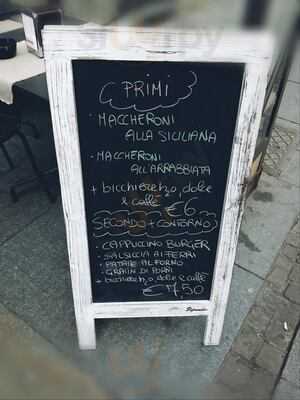 PRIMI
• MACCHERONI
ALLA SICILIANA
• MACCHERONI
ALL'ARRABBIATA
+ bicchiere h2o, dolce
e caffè
€6
SECONDO + CONTORNO
• CAPPUCCINO BURGER
• SALSICCIA AI FERRI
• PATATE AL FORNO
• GRATIN DI
+ bicchiere h2o, dolce e caffè
€7,50